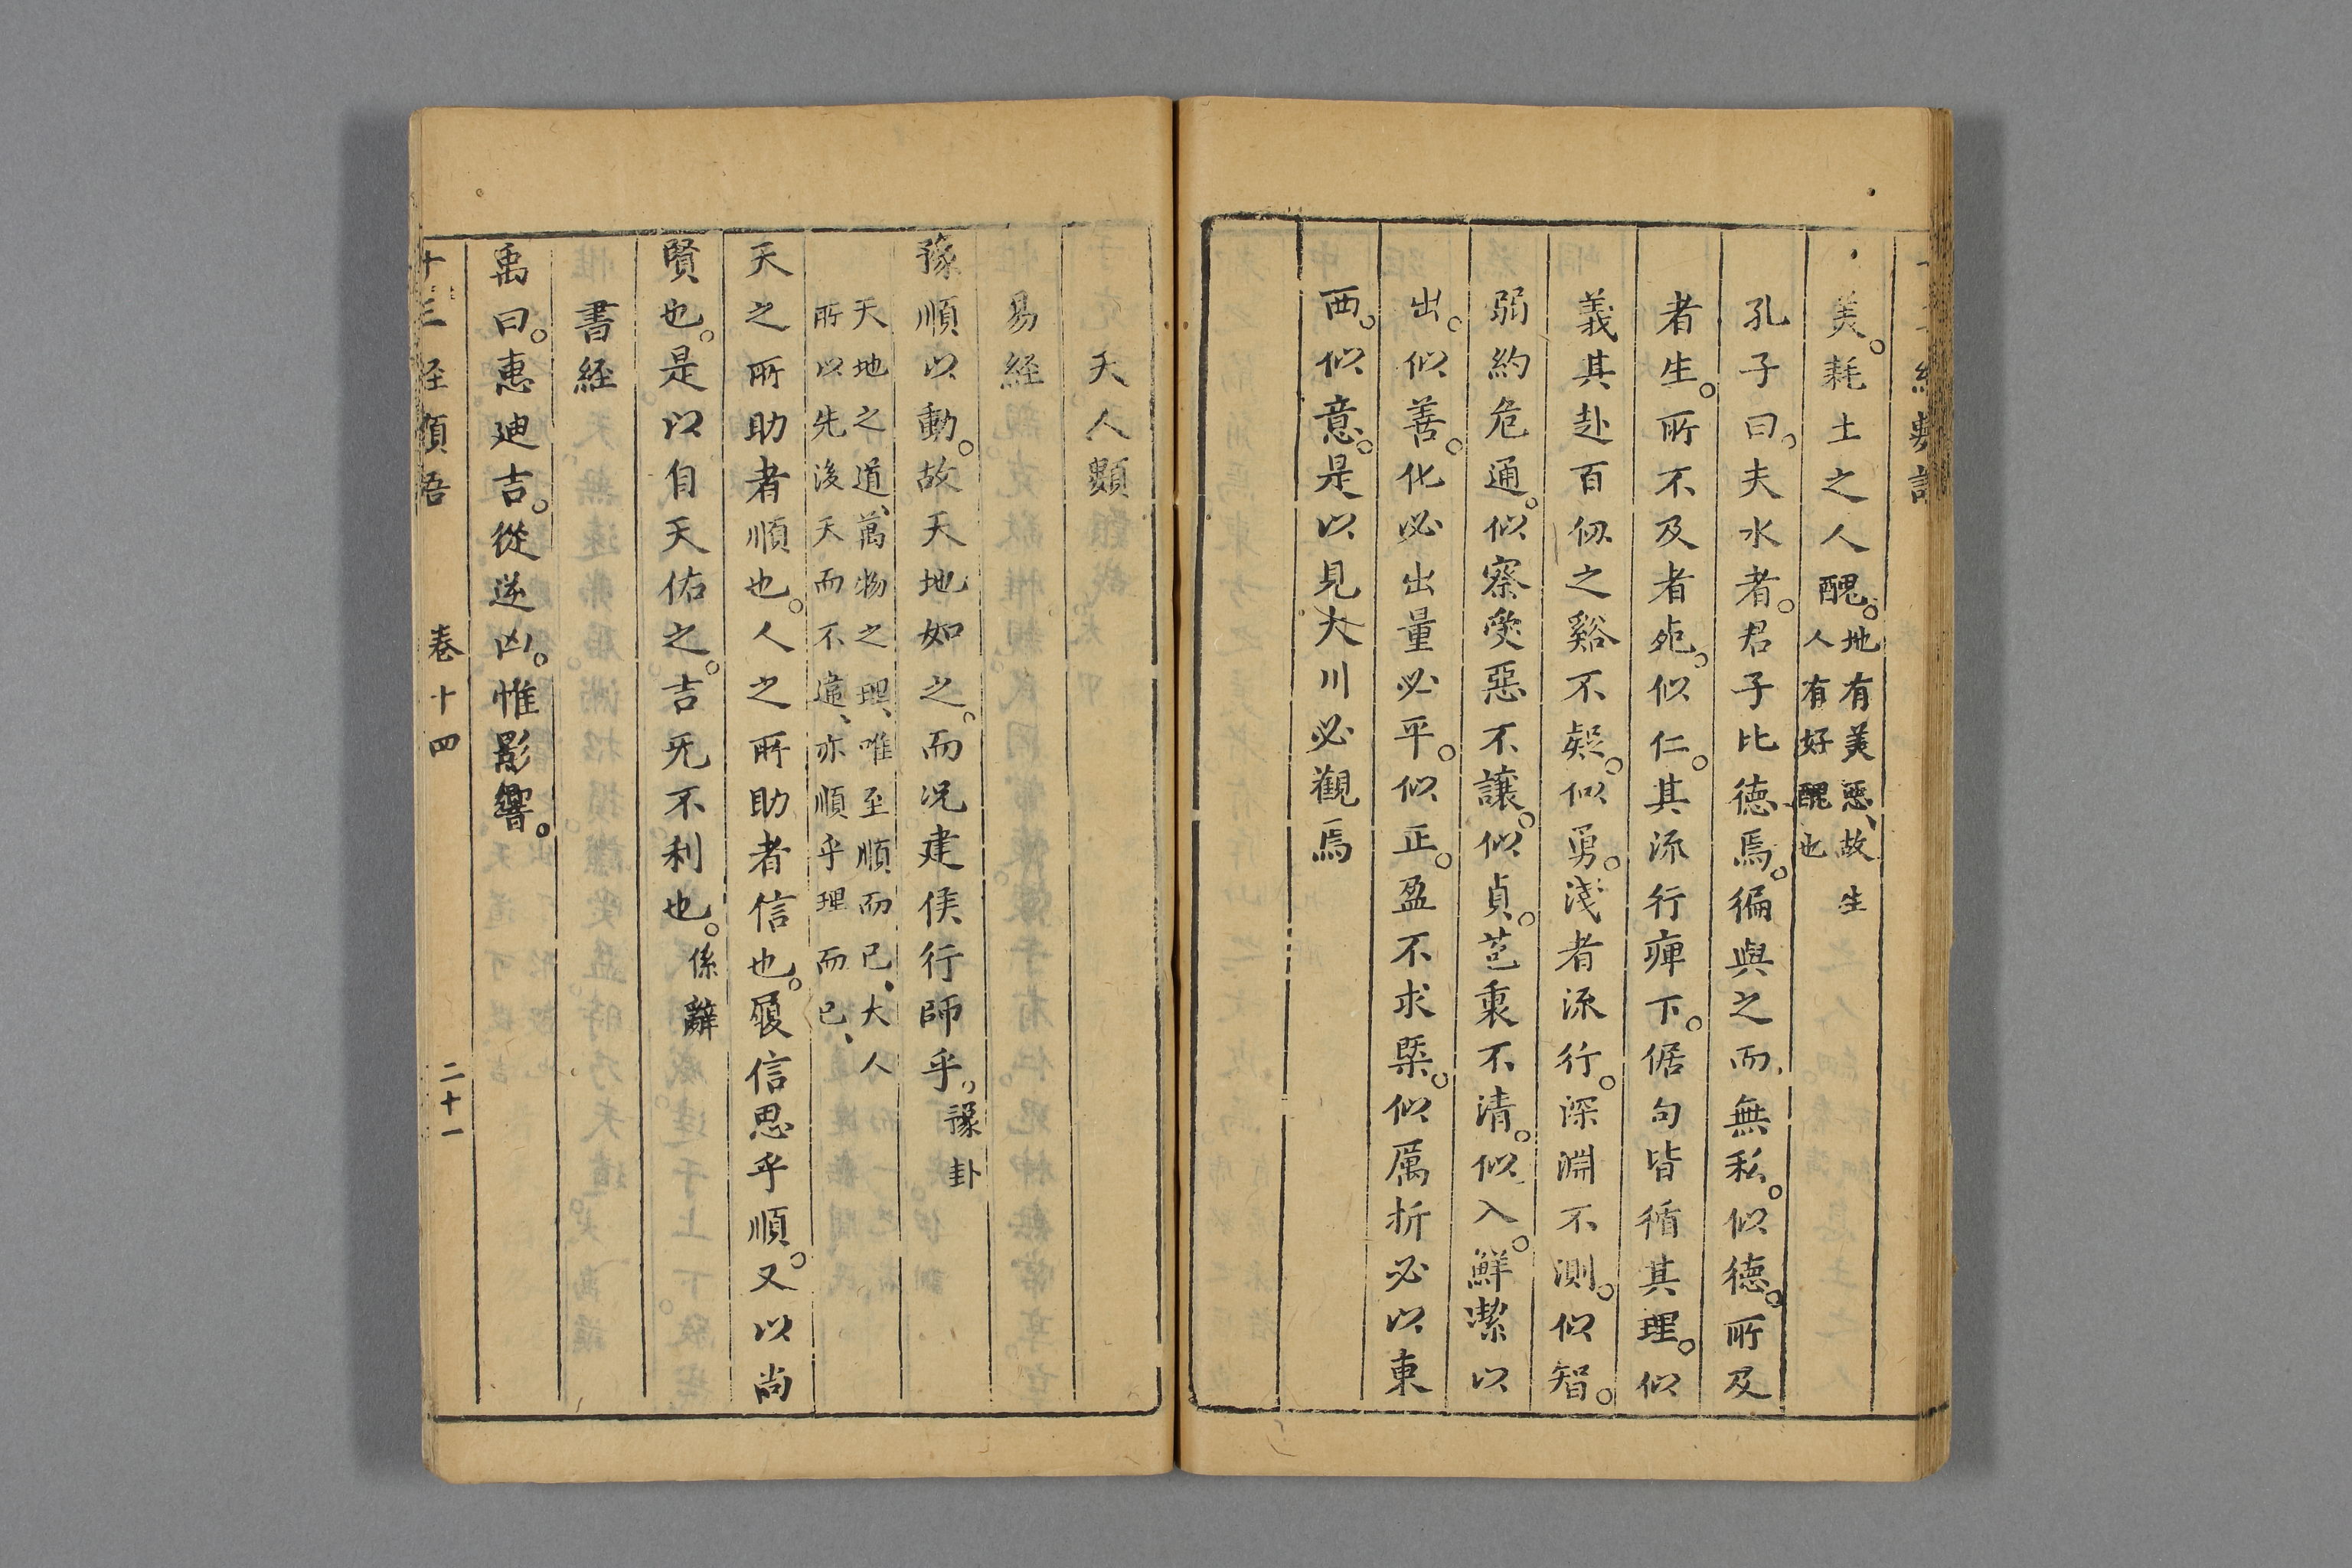 美。耗土之人醜。地有美惡、故生
人有好醜也
孔子曰。夫水者。君子比德焉。徧與之而無私。似德。所及
者生。所不及者死。似仁。其流行痺下。倨句皆循其理。似
義其赴百仞之谿不疑。似勇。淺者流行。深淵不測。似智。
弱約危通。似察受惡不讓。似貞。苞裹不清。似入。鮮潔以
出。似善。化必出量必平。似正。盈不求槩。似厲折必以東
西。似意。是以見大川必觀焉
天人類
易經
豫順以動。故天地如之。而況建侯行師乎。豫卦
天地之道、萬物之理、唯至順而已、大人
所以先後天而不違、亦順乎理而已、
天之所助者順也。人之所助者信也。履信思乎順。又以尚
賢也。是以自天佑之。吉旡不利也。係辭
書経
禹曰。惠迪吉。從逆凶。惟影響。
十三経類語 卷十四 二十一